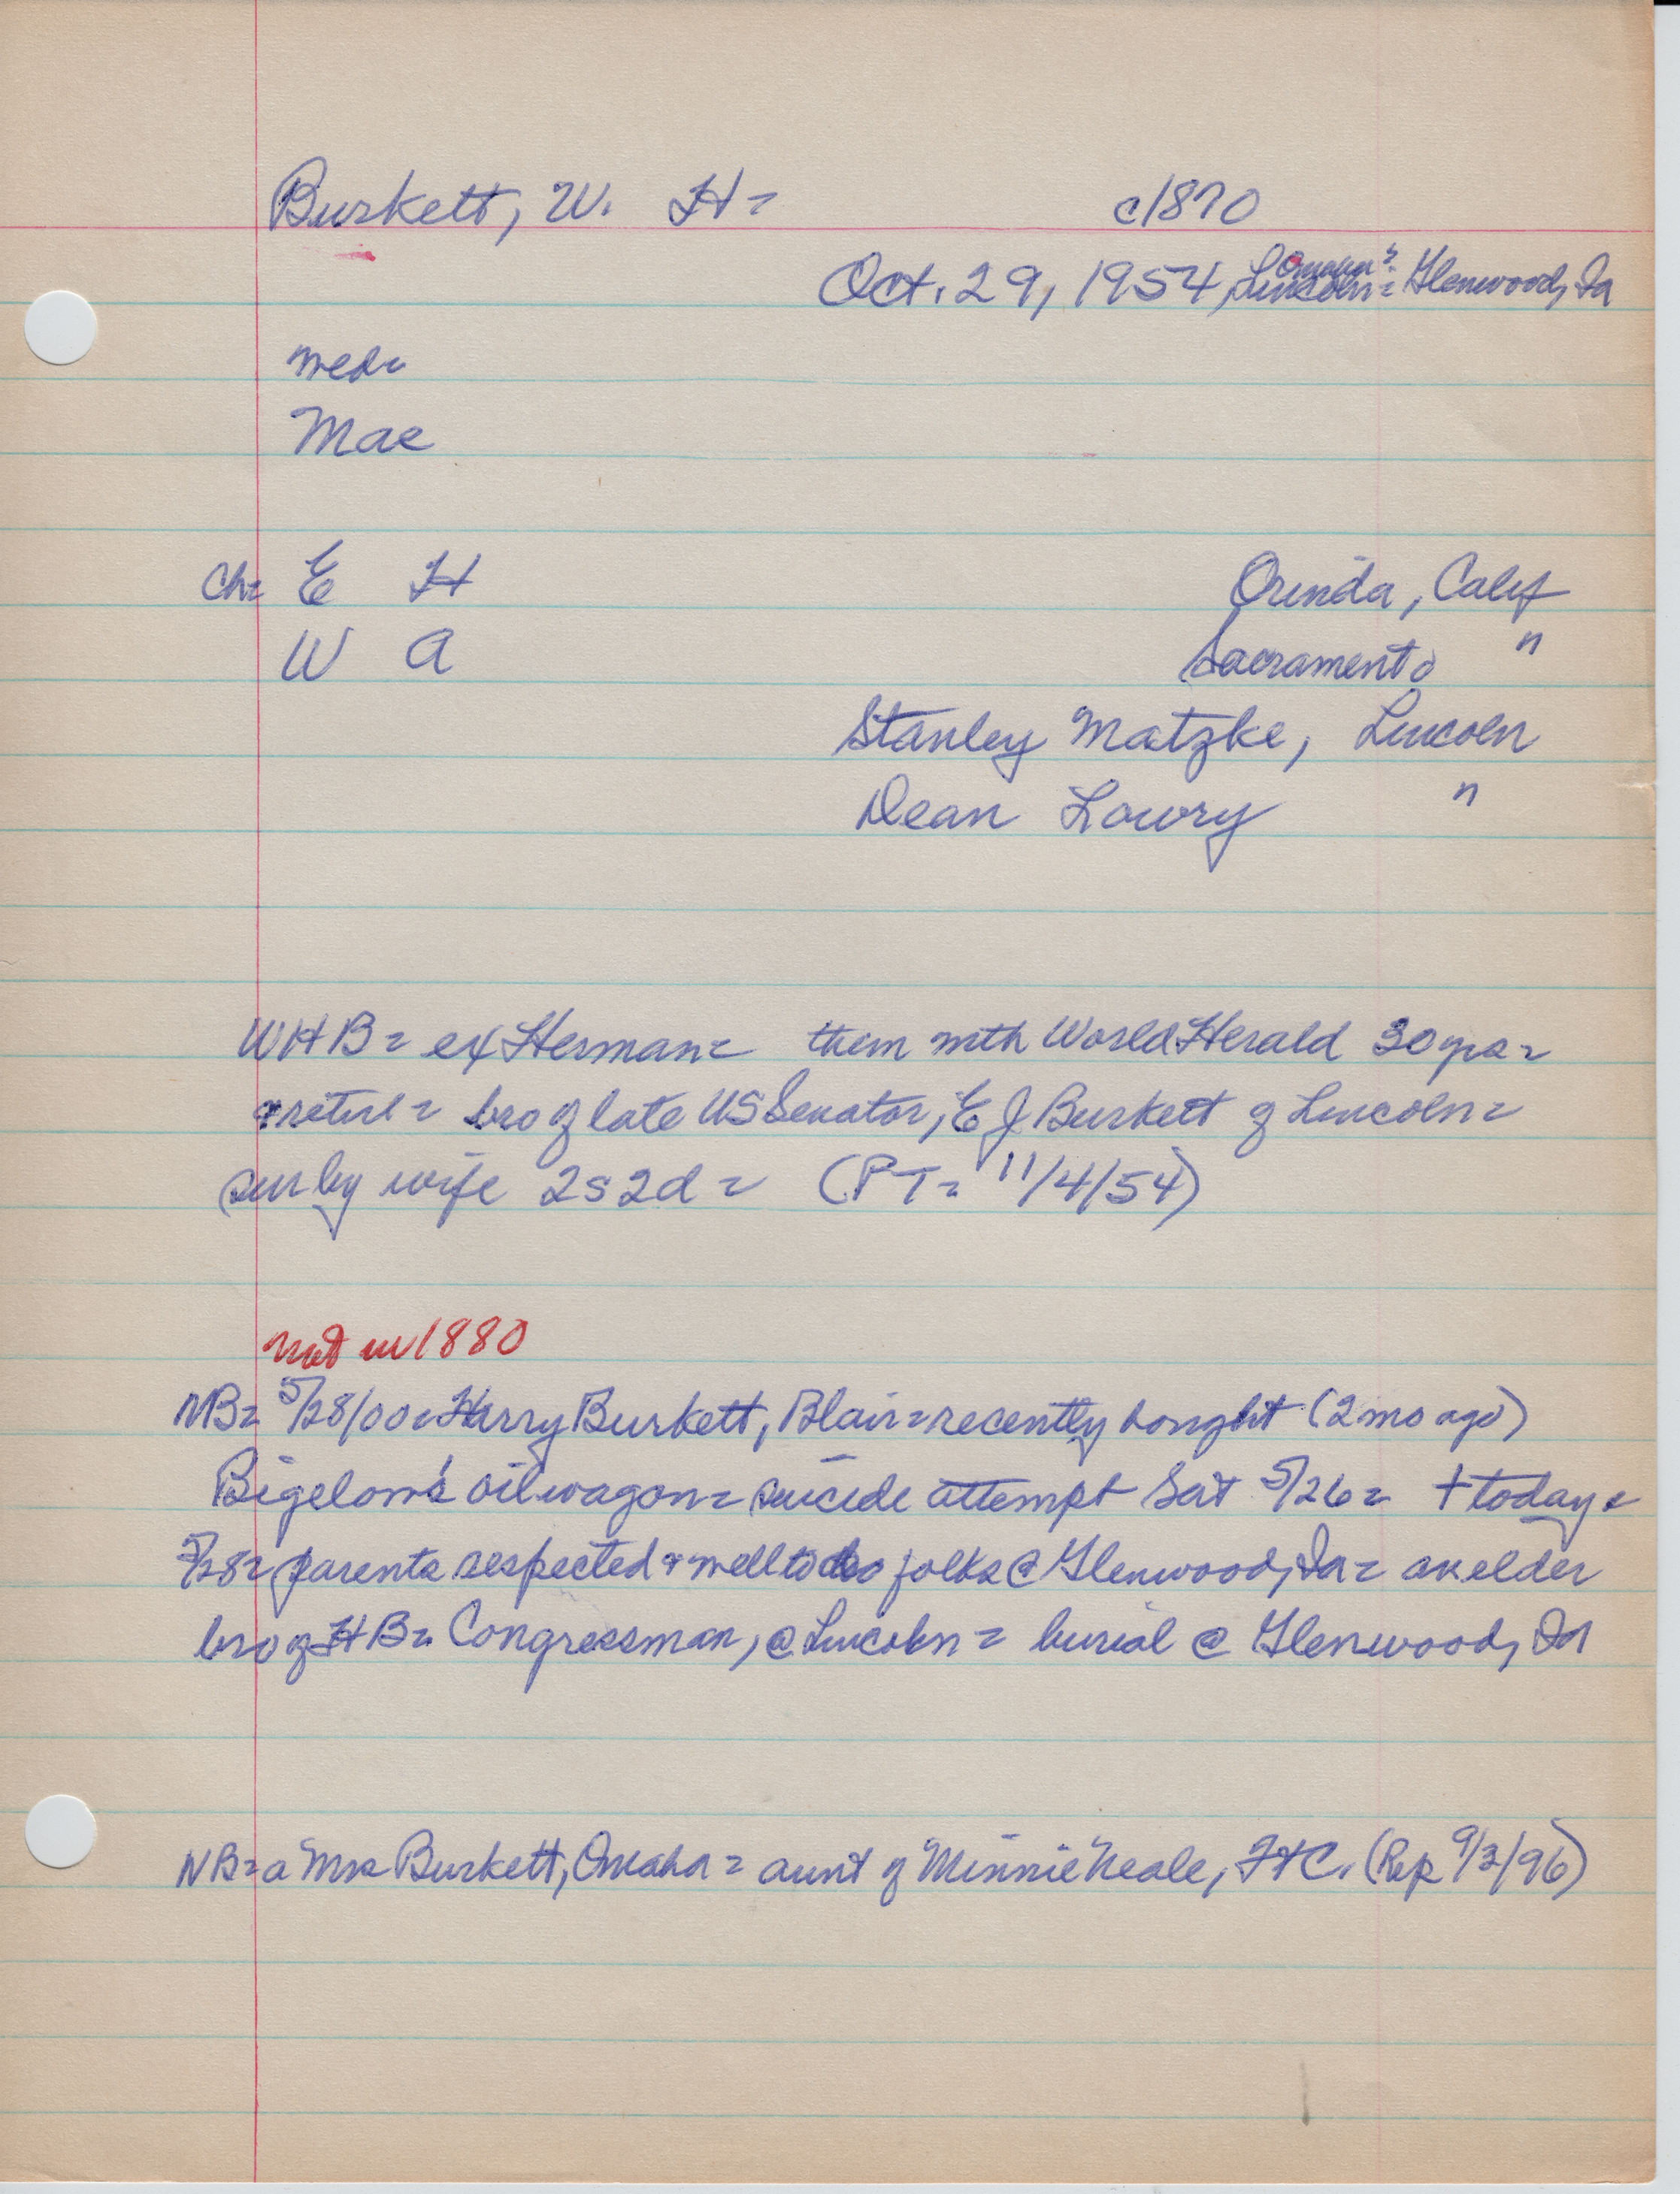 Burkett, W. H= c1870
Omaha?
Oct. 29, 1954, Lincoln= Glenwood, Ia
wed=
Mae
Ch= E H Orinda, Calif
W A Sacramento "
Stanley Matzke, Lincoln
Dean Lowry "
WHB= ex Herman= then with World Herald 30 yrs=
& retired= bro of late US Senator, E J Burkett of Lincoln=
sur by wife 2s 2d= (PT= 11/4/54)
not in 1880
NB= 5/28/00= Harry Burkett, Blair= recently bought (2 mo ago)
Bigelow's oil wagon= suicide attempt Sat 5/26= + today=
5/28= parents respected & well to do folks @ Glenwood, Ia= an elder
bro of HB= Congressman, @ Lincoln= burial @ Glenwood, Ia
NB= a Mrs Burkett, Omaha= aunt of Minnie Neale, FtC. (Rep 9/3/96)